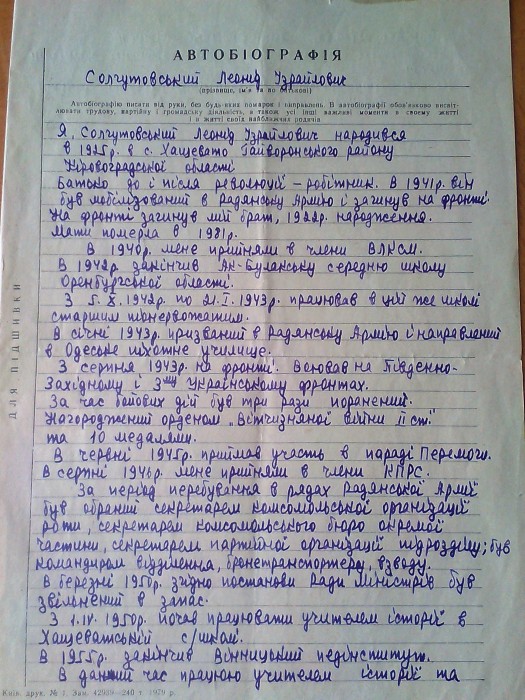 АВТОБІОГРАФІЯ
Солгутовський Леонід Ізраїлович
(прізвище, ім'я та по батькові)
Автобіографію писати від руки, без будь-яких помарок і направлень. В автобіографії обов'язково висвіт-
лювати трудову, партійну і громадську діяльність, а також усі інші важливі моменти в своєму житті
і в житті своїх найближчих родичів
Я, Солгутовський Леонід Ізраїлович народився
в 1925р. в с. Хащевато Гайворонського району
Кіровоградської області
Батько до і після революції – робітник. В 1941р. він
був мобілізований в Радянську Армію і загинув на фронті.
На фронті загинув мій брат, 1922р. народження.
Мати померла в 1981р.
В 1940р. мене прийняли в члени ВЛКСМ.
В 1942р. закінчив Ак-Булакську середню школу
Оренбургської області.
З 5.X.1942р. по 21.I.1943р. працював в цій же школі
старшим піонервожатим.
В січні 1943р. призваний в Радянську Армію і направлений
в Одеське піхотне училище.
З серпня 1943р. на фронті. Воював на Південно-
Західному і 3му Українському фронтах.
За час бойових дій був три рази поранений.
Нагороджений орденом „Вітчизняної війни II ст."
та 10 медалями.
В червні 1945р. приймав участь в параді Перемоги.
В серпні 1946р. мене прийняли в члени КПРС.
За період перебування в рядах Радянської Армії
був обраний секретарем комсомольської організації
роти, секретарем комсомольського бюро окремої
частини, секретарем партійної організації підрозділу; був
командиром відділення, бронетранспортеру, взводу.
В березні 1950р. згідно постанови Ради Міністрів був
звільнений в запас.
З 1.IV.1950р. почав працювати учителем історії в
Хащеватській с/школі.
В 1955р. закінчив Вінницький педінститут.
В даний час працюю учителем історії та
Київ. друк. № 7. Зам. 42935—240 т. 1979 р.
ДЛЯ ПІДШИВКИ